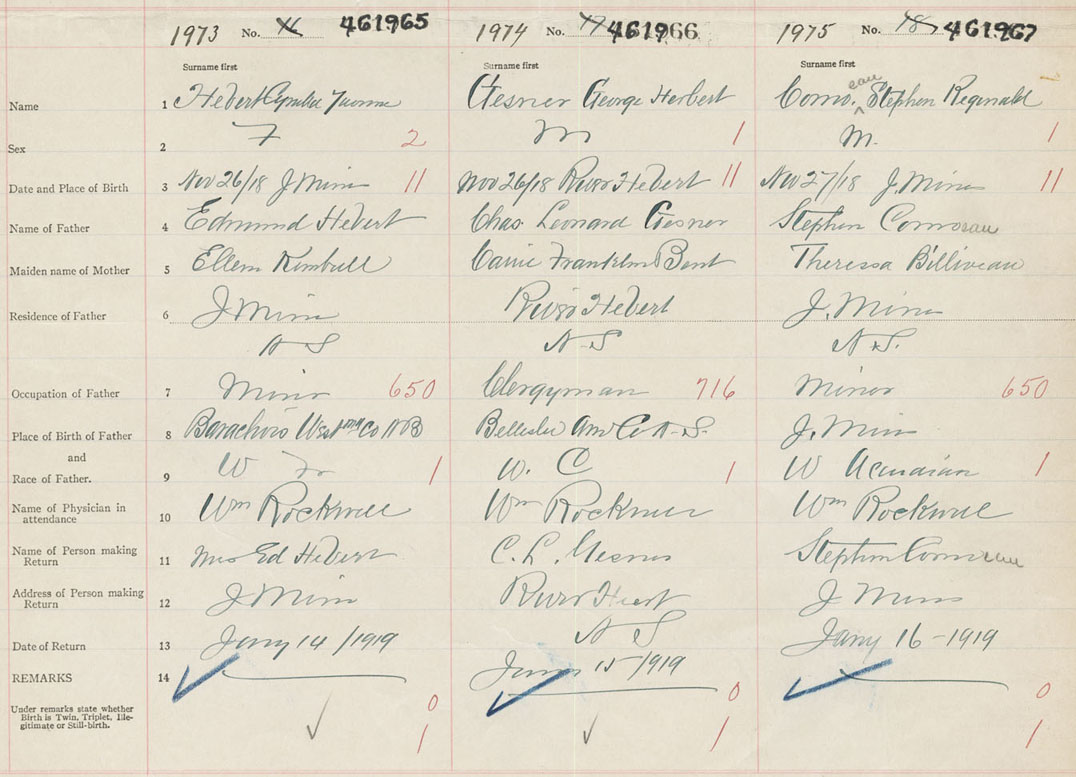 1973 No. 461965 1974 No. 17 461966 1975 No. 18 461967
Surname first Surname first Surname first
Name 1 Hebert Yvonne Gesner George Herbert Comeau Stephen Reginald
Sex 2 F 2 M 1 M. 1
Date and Place of Birth 3 Nov 26/18 J Mines 11 Nov 26/18 River Hebert 11 Nov 27/18 J. Mines 11
Name of Father 4 Edmund Hebert Chas Leonard Gesner Stephen Comeau
Maiden name of Mother 5 Ellen Kimball Carrie Franklin Bent Theressa Billiveau
Residence of Father 6 J Mines River Hebert J. Mines
N S N-S N.S.
Occupation of Father 7 Miner 650 Clergyman 716 Miner 650
Place of Birth of Father 8 Barachois West Co N B Belleisle Ann Co N.S. J. Mines
and
Race of Father. 9 W Fr 1 W. C 1 W Acadian 1
Name of Physician in attendance 10 Wm Rockwell Wm Rockwell Wm Rockwell
Name of Person making Return 11 Mrs Ed Hebert C. L. Gesner Stephen Comeau
Address of Person making Return 12 J Mines River Hebert J Mines
N S
Date of Return 13 Jany 14/1919 15/1919 Jany 16-1919
REMARKS 14
Under remarks state whether 0 0 0
Birth is Twin, Triplet, Ille-
gitimate or Still-birth. 1 1 1